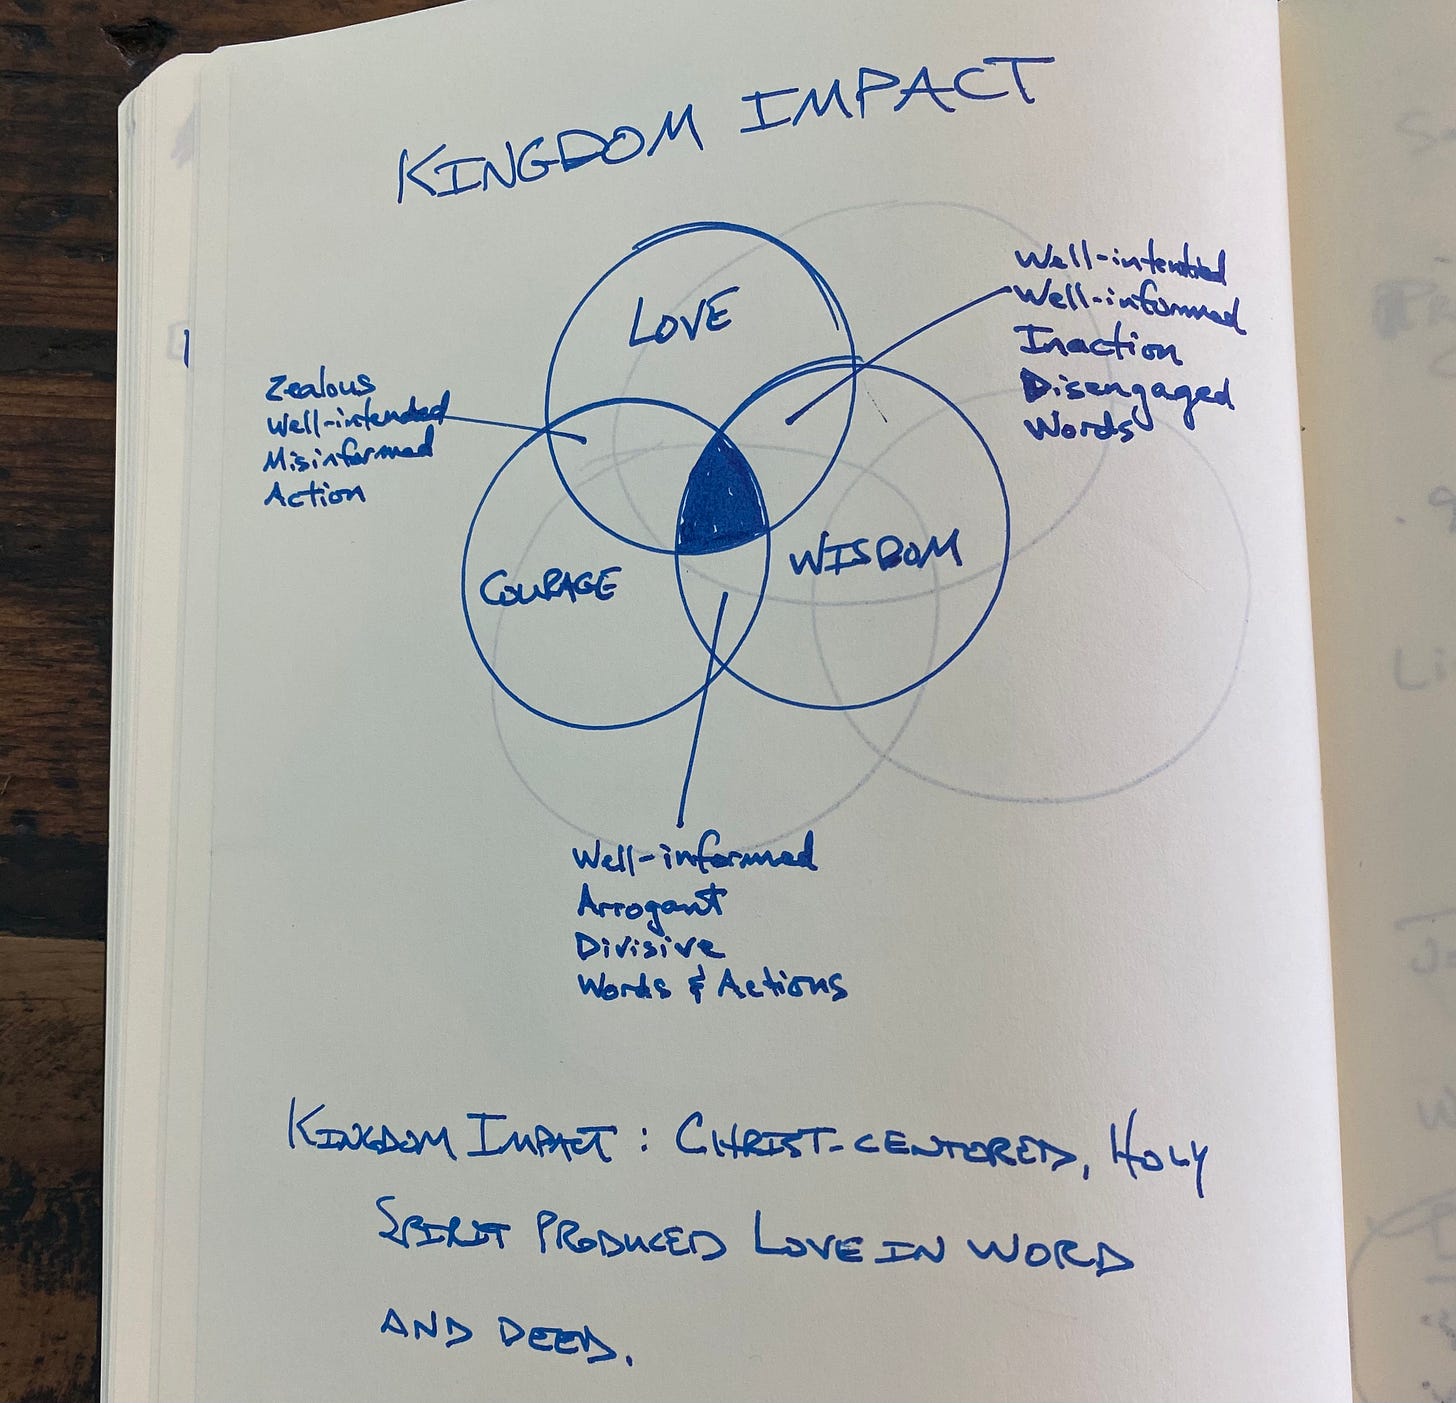 KINGDOM IMPACT
LOVE
Well-intended
Well-informed
Inaction
Disengaged
Words
Zealous
Well-intended
Misinformed
Action
COURAGE
WISDOM
Well-informed
Arrogant
Divisive
Words & Actions
KINGDOM IMPACT: CHRIST-CENTERED, HOLY
SPIRIT PRODUCED LOVE IN WORD
AND DEED.